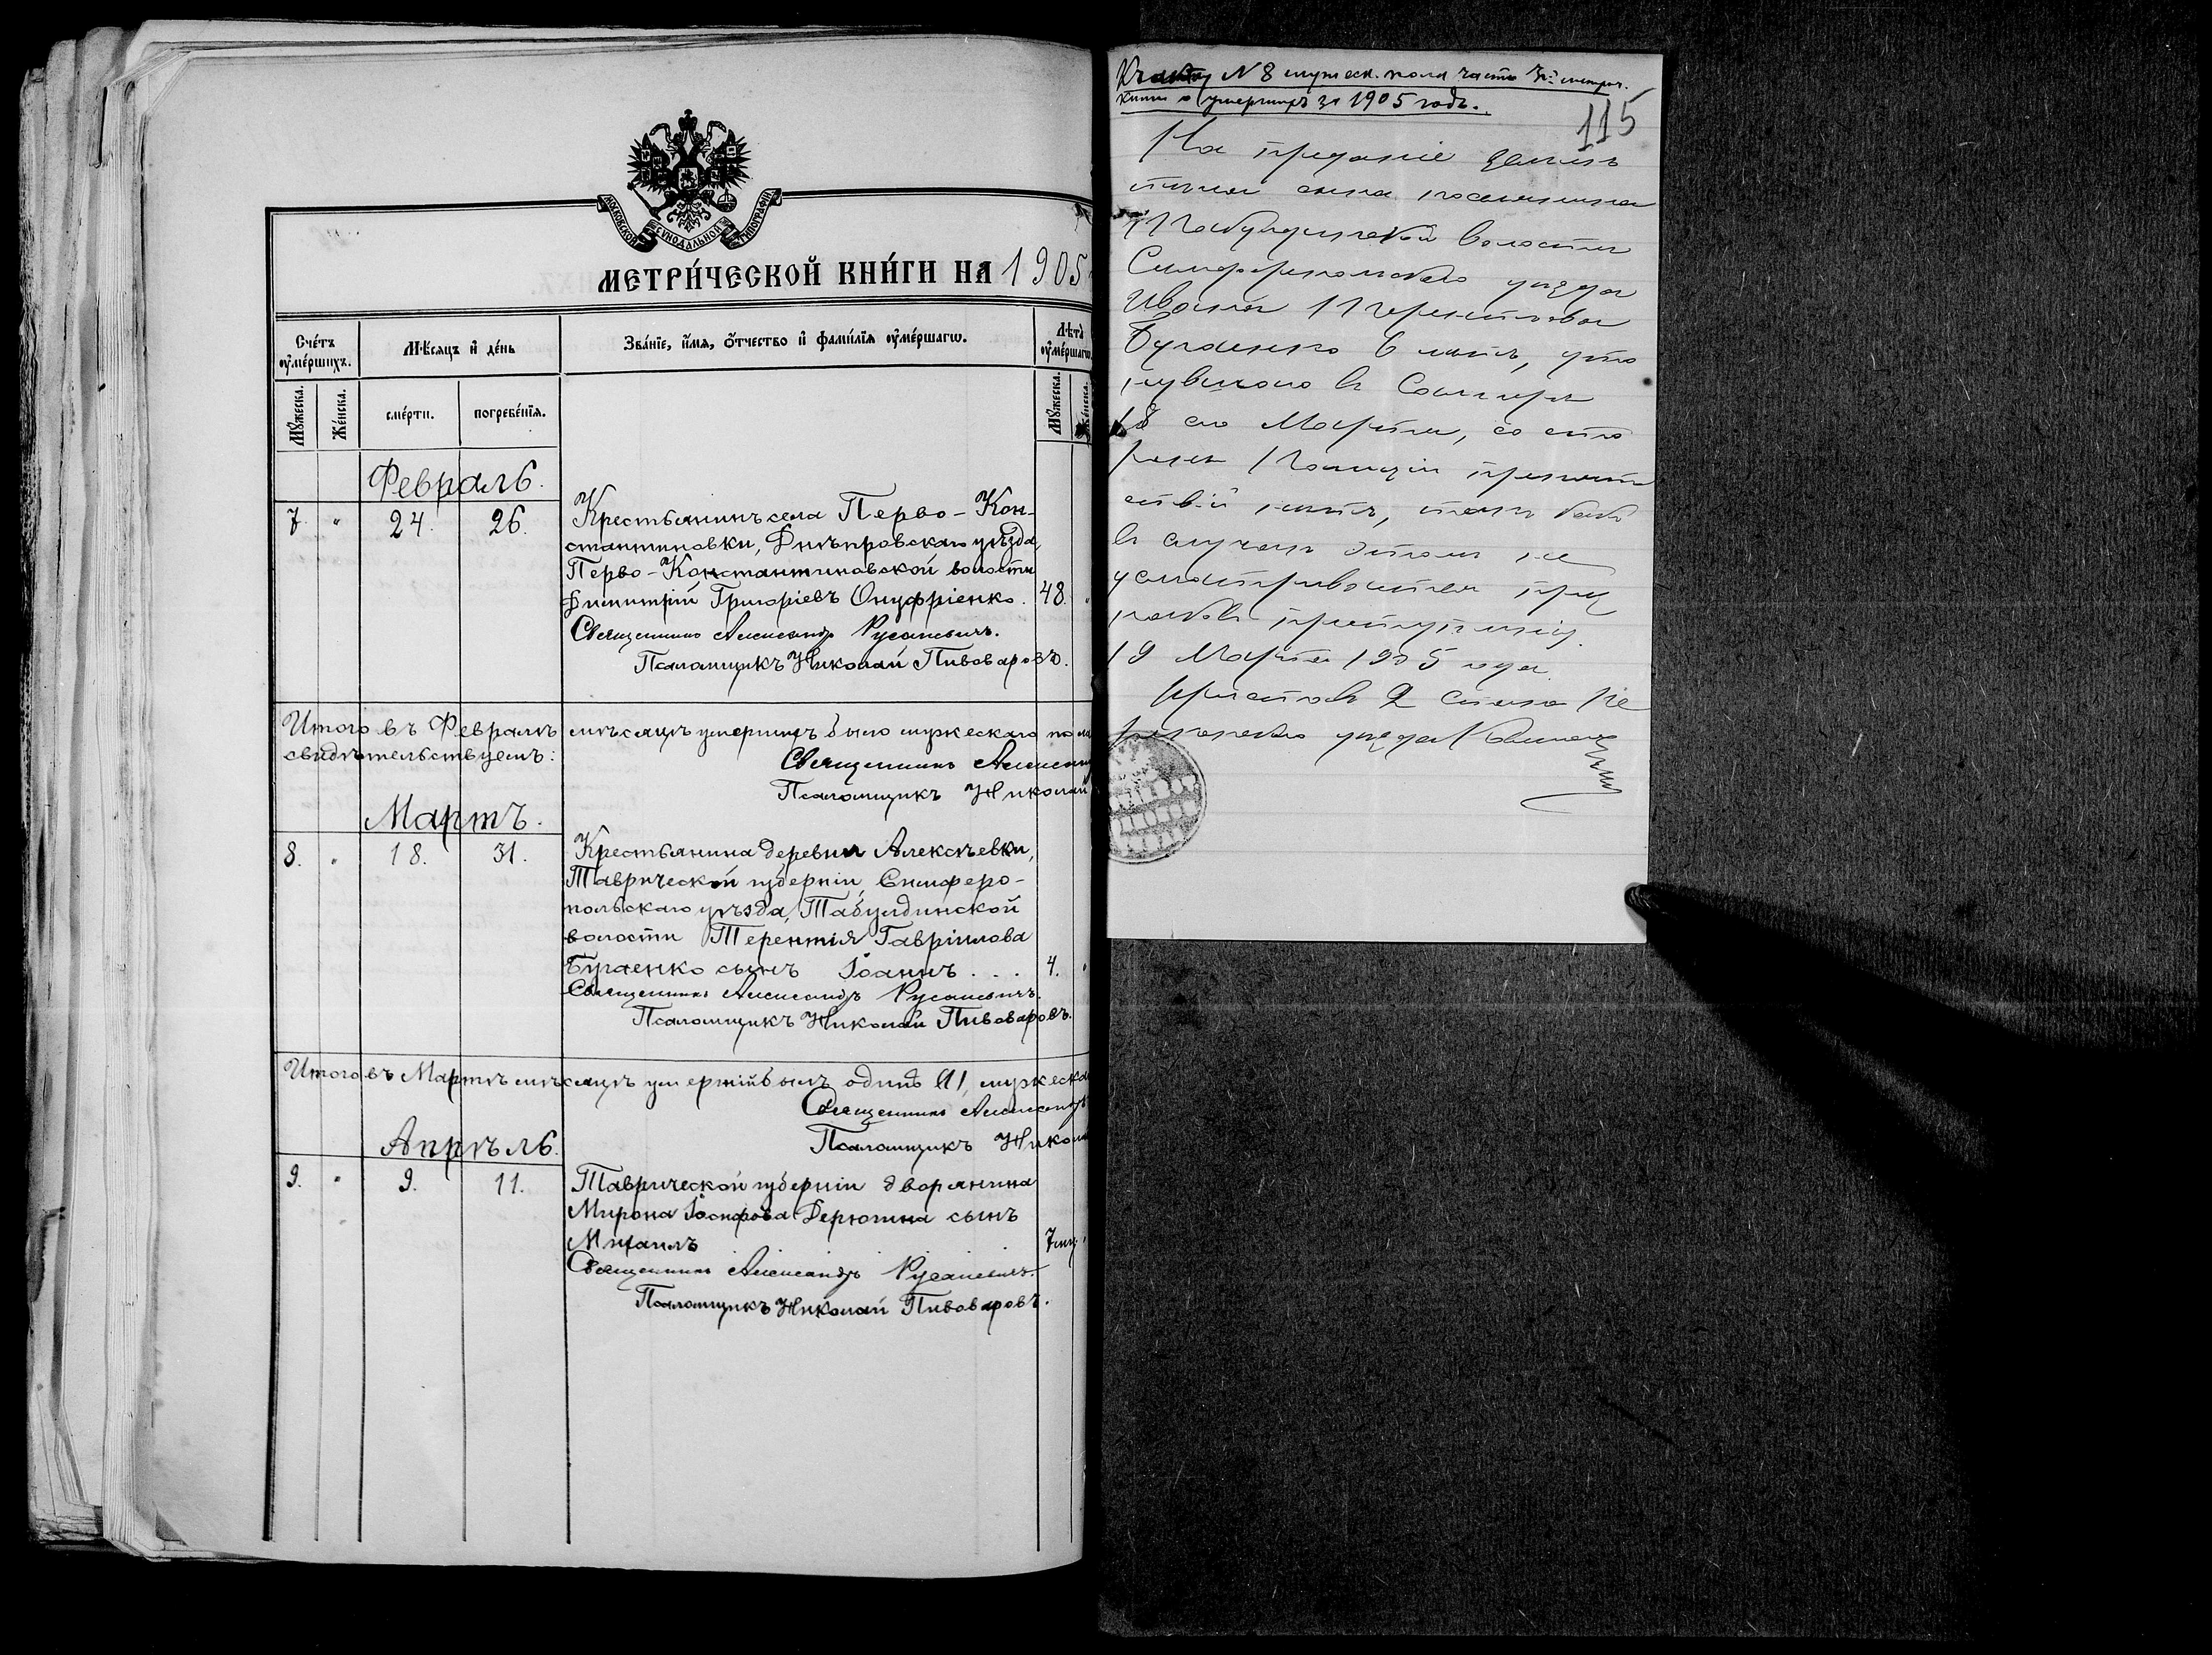 МОСКОВСКОЙ СѴНОДАЛЬНОЙ ТИПОГРАФІИ
МЕТРИ́ЧЕСКОЙ КНИ́ГИ НА 1905
Сче́тъ ᲂу҆ме́ршихъ.
Мѣ́сяцъ и҆ де́нь
Зва́нїе, и҆́мѧ, ѻ҆́тчество и҆ фами́лїѧ ᲂу҆ме́ршагѡ.
Лѣ́та ᲂу҆ме́ршагѡ
Мꙋ́жеска.
Же́нска.
сме́рти.
погребе́нїѧ.
Мꙋ́жеска.
Же́нска.
Февраль.
7. " 24. 26. Крестьянинъ села Перво-Кон-
стантиновки, Днѣпровскаго уѣзда,
Перво-Константиновской волости
Димитрій Григоріевъ Онуфріенко. 48.
Священникъ Александръ Русаневичъ.
Псаломщикъ Николай Пивоваровъ.
Итого въ Февралѣ мѣсяцѣ умершихъ было мужескаго пола
свидѣтельствуемъ:
Священникъ
Псаломщикъ Николай
Мартъ.
8. " 18. 31. Крестьянина деревни Алексѣевки,
Таврической губерніи, Симферо-
польскаго уѣзда, Табулдинской
волости Терентія Гавріилова
Бугаенко сынъ Іоаннъ . . . 4.
Священникъ Александръ Русаневичъ.
Псаломщикъ Николай Пивоваровъ.
Итого въ Мартѣ мѣсяцѣ умершій былъ одинъ /1/ мужеска
Священникъ Александръ
Псаломщикъ Никола
Апрѣль.
9. " 9. 11. Таврической губерніи дворянина
Мирона Іосифова Дерюгина сынъ
Михаилъ 7 мѣс.
Священникъ Александръ Русаневичъ.
Псаломщикъ Николай Пивоваровъ.
N 8 мужеск. пола часть 3й метрич.
книги о умершихъ за 1905 годъ.
115
На преданіе землѣ
тѣла сына поселянина
Табулдинской волости
Симферопольскаго уѣзда
Ивана Терентьева
Бугаенко 6 лѣтъ, уто
нувшаго въ Салгирѣ
18 сего Марта, со сто
роны Полиціи препят
ствій нѣтъ, такъ какъ
въ случаѣ этомъ не
усматривается приз
наковъ преступленія.
19 Марта 1905 года.
Приставъ 2 стана Пе
рекопскаго уѣзда